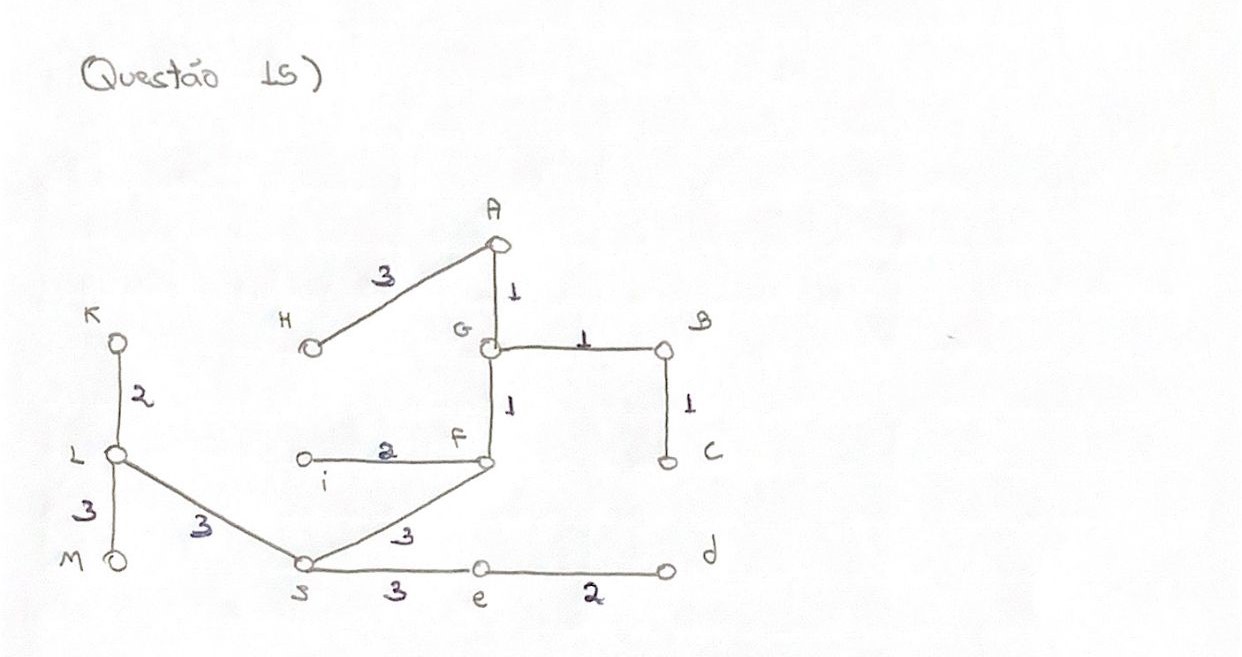 Questão 15)
A
3
1
K
H
G
1
B
2
1
1
L
2
F
C
i
3
3
3
M
d
s
3
e
2